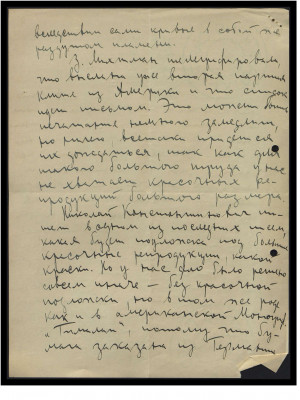 вследствии сами кривые в собой же
раздутом пламени.
З. Лихтман телеграфировала,
что выслан уже вторая партия
книг из Америки и что список
идет письмом. Это может быть
печатание немного замедлит,
но ничего всетаки придется
их дождаться, так как для
такого большого труда у нас
не хватает красочных ре-
продукций большого размера.
Николай Константинович пи-
шет в одном из последних писем,
какая будет подложка под большие
красочные репродукции, какой
краски. Но у нас было решено
совсем иначе — без красочной
подложки, но в том же роде
как и в американской Монограф.
"Гималаи", потому что бу-
мага заказана из Германии